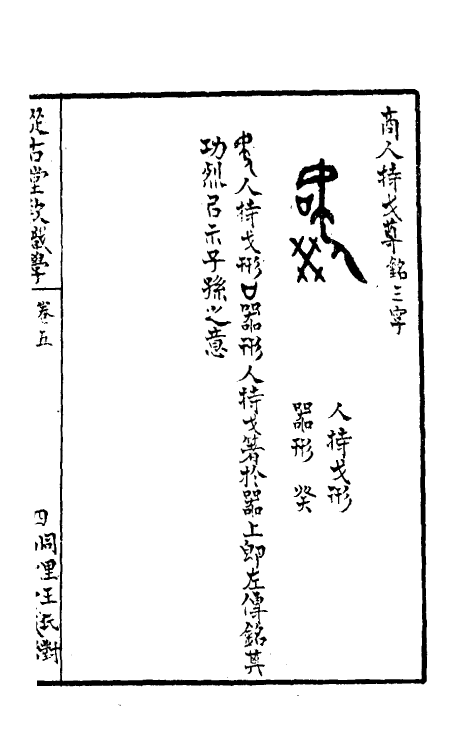 商人持戈尊銘三字
人持戈形
器形 癸
人持戈形 器形人持戈箸於器上即左傳銘其
功烈㠯示子孫之意
從古堂款識學
卷五
四
同里王氏